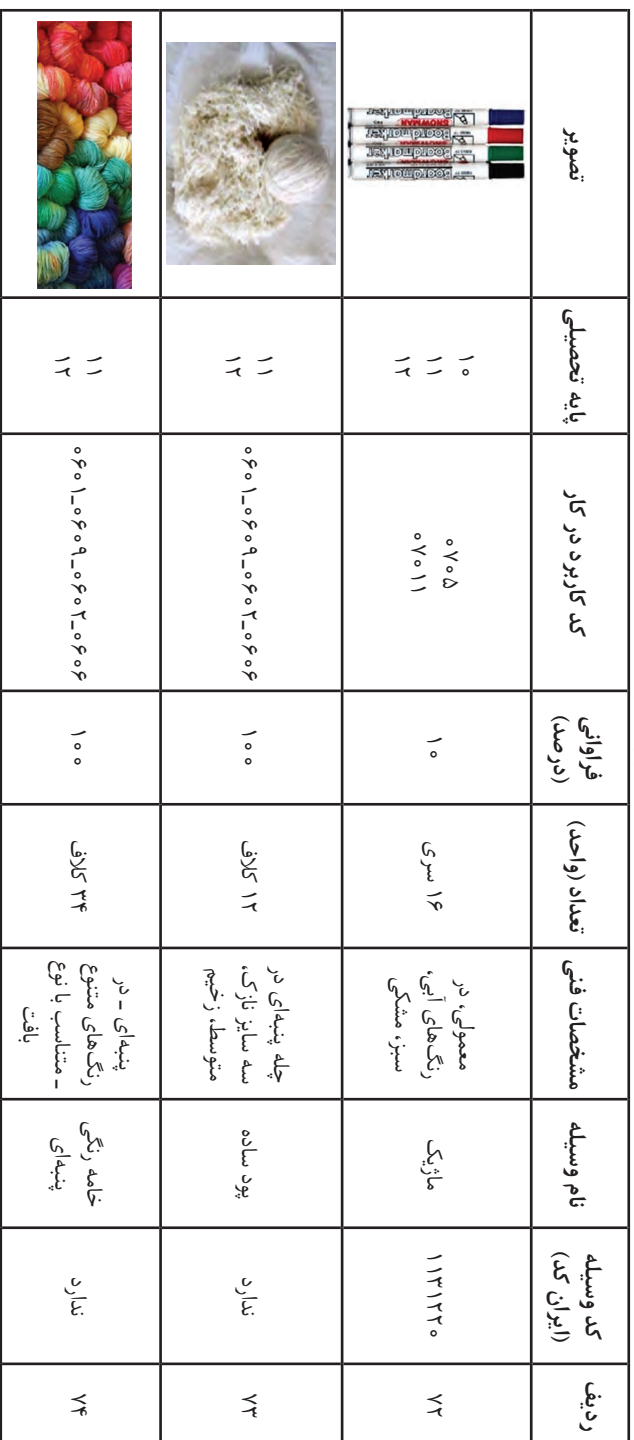 ردیف
کد وسیله
(ایران کد)
نام وسیله
مشخصات فنی
تعداد (واحد)
فراوانی
(درصد)
کد کاربرد در کار
پایه تحصیلی
تصویر
۷۲
۱۱۳۱۲۲۰
ماژیک
معمولی، در
رنگ‌های آبی،
سبز، مشکی
۱۶ سری
۱۰
۰۷۰۵
۰۷۰۱۱
۱۰
۱۱
۱۲
Boardmarker
SNOWMAN
Boardmarker
SNOWMAN
Boardmarker
Boardmarker
۷۳
ندارد
پود ساده
چله پنبه‌ای در
سه سایز نازک،
متوسط، زخیم
۱۲ کلاف
۱۰۰
۰۶۰۱_۰۶۰۹_۰۶۰۲_۰۶۰۶
۱۱
۱۲
۷۴
ندارد
خامه رنگی
پنبه‌ای
پنبه‌ای - در
رنگ‌های متنوع
- متناسب با نوع
بافت
۳۴ کلاف
۱۰۰
۰۶۰۱_۰۶۰۹_۰۶۰۲_۰۶۰۶
۱۱
۱۲